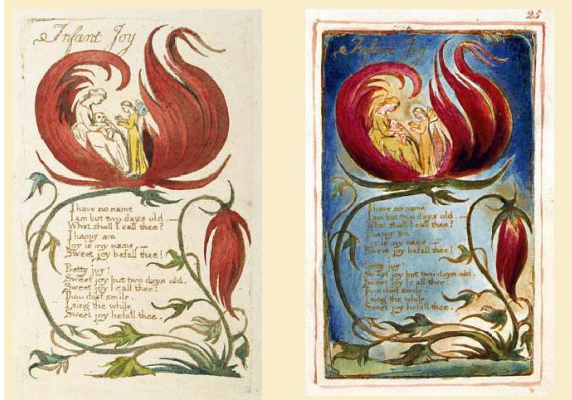 Infant Joy
I have no name
I am but two days old —
What shall I call thee?
I happy am
Joy is my name, —
Sweet joy befall thee!
Pretty joy!
Sweet joy but two days old.
Sweet joy I call thee:
Thou dost smile.
I sing the while
Sweet joy befall thee.
25
Infant Joy
I have no name
I am but two days old —
What shall I call thee?
I happy am
Joy is my name, —
Sweet joy befall thee!
Pretty joy!
Sweet joy but two days old.
Sweet joy I call thee:
Thou dost smile.
I sing the while
Sweet joy befall thee.